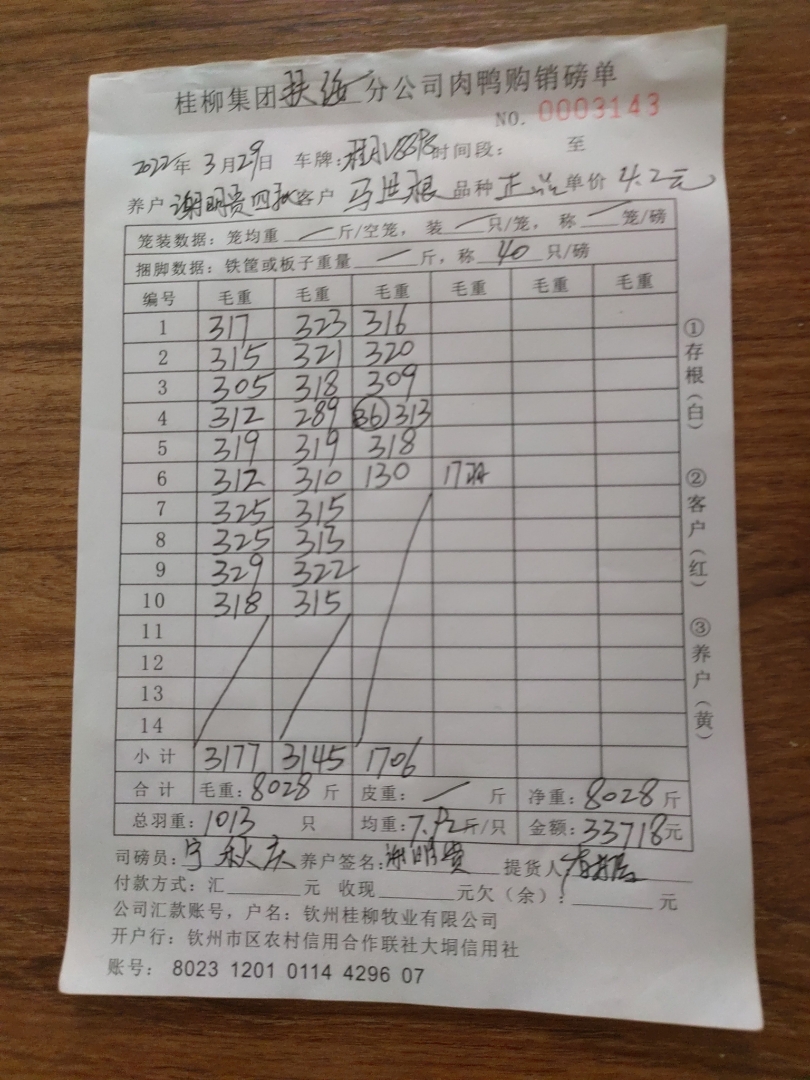 桂柳集团扶绥分公司肉鸭购销磅单
NO. 0003143
2022年3月29日 车牌: 时间段: 至
养户 谢明贵四秋 客户 马世根 品种 正 单价 4.2元
笼装数据: 笼均重 / 斤/空笼, 装 / 只/笼, 称 / 笼/磅
捆脚数据: 铁筐或板子重量 / 斤, 称 40 只/磅
编号 毛重 毛重 毛重 毛重 毛重 毛重
1 317 323 316
2 315 321 320
3 305 318 309
4 312 289 (36) 313
5 319 319 318
6 312 310 130 17羽
7 325 315
8 325 313
9 329 322
10 318 315
11
12
13
14
小计 3177 3145 1706
合计 毛重: 8028 斤 皮重: / 斤 净重: 8028 斤
总羽重: 1013 只 均重: 7.92 斤/只 金额: 33718元
司磅员: 宁秋庆 养户签名: 谢明贵 提货人
付款方式: 汇______元 收现______元欠(余):______元
公司汇款账号, 户名: 钦州桂柳牧业有限公司
开户行: 钦州市区农村信用合作联社大垌信用社
账号: 8023 1201 0114 4296 07
①存根(白) ②客户(红) ③养户(黄)